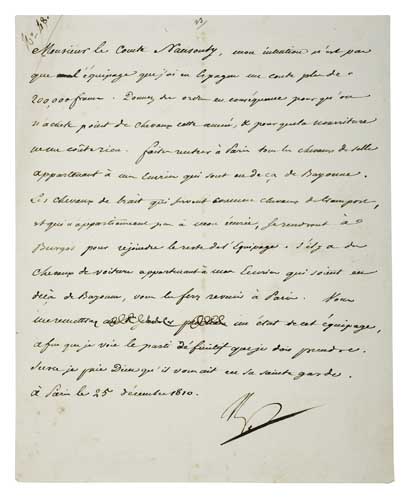 Monsieur le Comte Nansouty, mon intention n'est pas
que l'équipage que j'ai en Espagne me coute plus de
200,000 francs. Donnez des ordres en conséquence pour qu'on
n'achète point de chevaux cette année, & pour que la nourriture
ne me coûte rien. faites rentrer à Paris tous les chevaux de selle
appartenant à mon Ecurie qui sont en deçà de Bayonne.
Les chevaux de trait qui servent comme chevaux de transport,
et qui n'appartiennent pas à mon écurie, se rendront à
Burgos pour rejoindre le reste de l'Equipage. S'il y a des
chevaux de voiture appartenant à mon Ecurie qui soient en
deçà de Bayonne, vous les ferez revenir à Paris. Vous
me remettrez un état de cet équipage,
afin que je voie le parti définitif que je dois prendre.
Sur ce je prie Dieu qu'il vous ait en sa sainte garde.
à Paris le 25 décembre 1810.